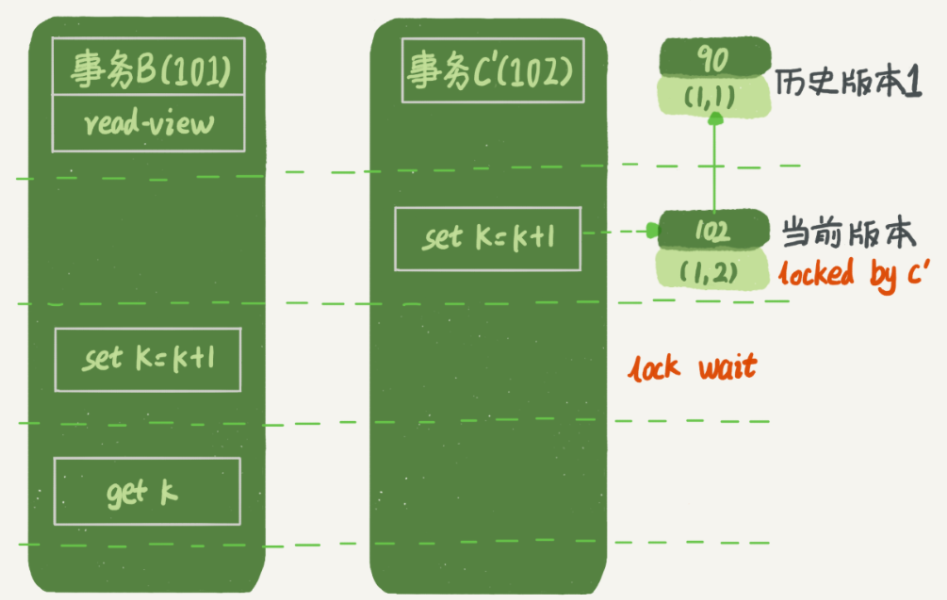 事务B(101)
read-view
事务C'(102)
90
(1,1)
历史版本1
set k=k+1
102
(1,2)
当前版本
locked by c'
set k=k+1
lock wait
get k